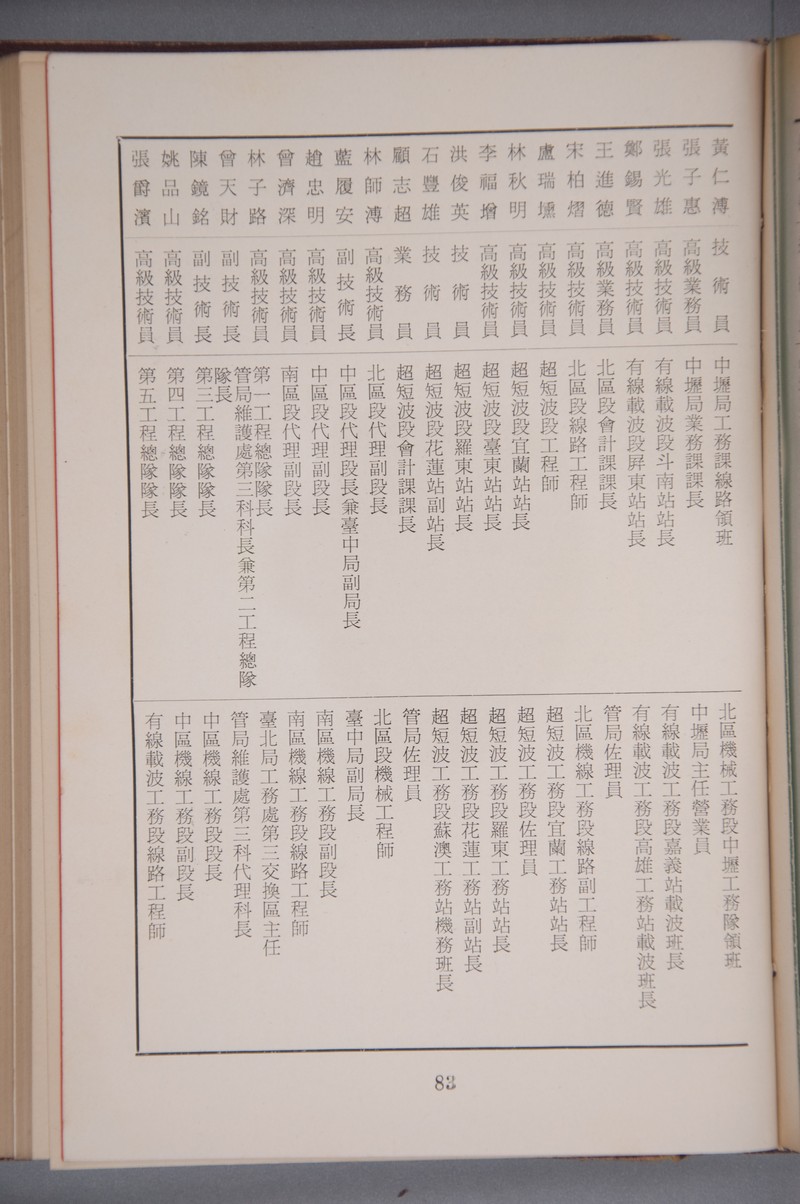 黃仁溥 技術員 中壢局工務課線路領班 北區機械工務段中壢工務隊領班
張子惠 高級業務員 中壢局業務課課長 中壢局主任營業員
張光雄 高級技術員 有線載波段斗南站站長 有線載波工務段嘉義站載波班長
鄭錫賢 高級技術員 有線載波段屏東站站長 有線載波工務段高雄工務站載波班長
王進德 高級業務員 北區段會計課課長 管局佐理員
宋柏熠 高級技術員 北區段線路工程師 北區機線工務段線路副工程師
盧瑞壎 高級技術員 超短波段工程師 超短波工務段宜蘭工務站站長
林秋明 高級技術員 超短波段宜蘭站站長 超短波工務段佐理員
李福增 高級技術員 超短波段臺東站站長 超短波工務段羅東工務站站長
洪俊英 技術員 超短波段羅東站站長 超短波工務段花蓮工務站副站長
石豐雄 技術員 超短波段花蓮站副站長 超短波工務段蘇澳工務站機務班長
顧志超 業務員 超短波段會計課課長 管局佐理員
林師溥 高級技術員 北區段代理副段長 北區段機械工程師
藍履安 副技術長 中區段代理段長兼臺中局副局長 臺中局副局長
趙忠明 高級技術員 中區段代理副段長 南區機線工務段副段長
曾濟深 高級技術員 南區段代理副段長 南區機線工務段線路工程師
林子路 高級技術員 第一工程總隊隊長 臺北局工務處第三交換區主任
曾天財 副技術長 管局維護處第三科科長兼第二工程總隊隊長 管局維護處第三科代理科長
陳鏡銘 副技術長 第三工程總隊隊長 中區機線工務段段長
姚品山 高級技術員 第四工程總隊隊長 中區機線工務段副段長
張爵濱 高級技術員 第五工程總隊隊長 有線載波工務段線路工程師
83